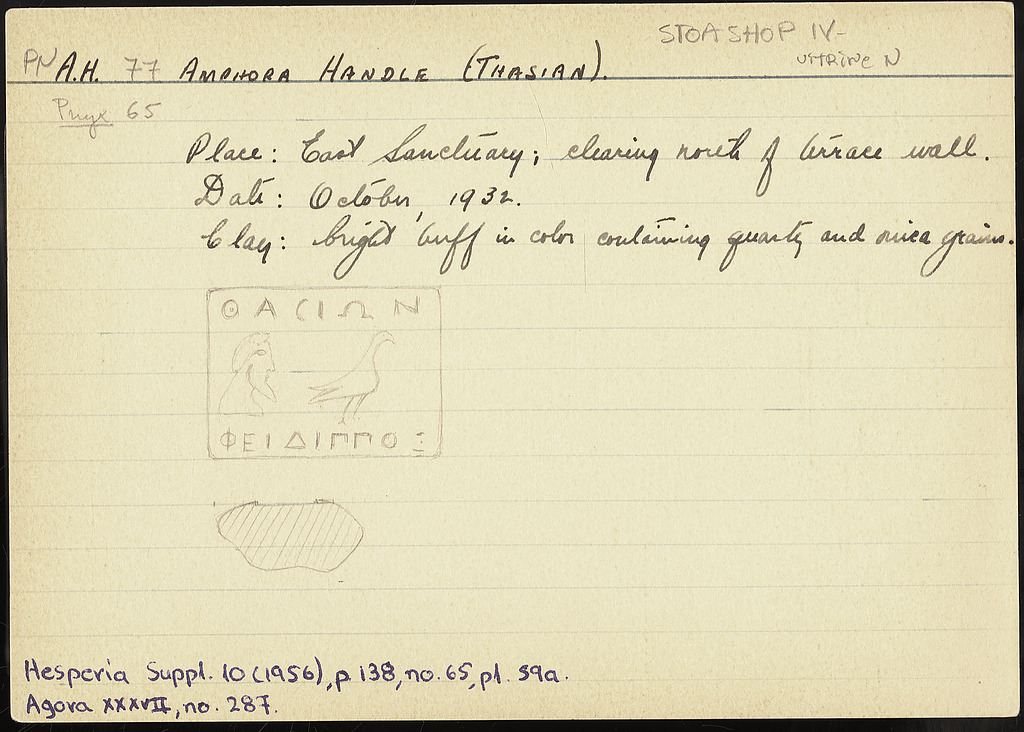 STOA SHOP IV-
VITRINE N
PN A.H. 77 AMPHORA HANDLE (THASIAN).
Pnyx 65
Place: East Sanctuary; clearing north of terrace wall.
Date: October, 1932.
Clay: bright buff in color containing quartz and mica grains.
ΘΑϹΙΩΝ
ΦΕΙΔΙΠΠΟΣ
Hesperia Suppl. 10 (1956), p 138, no. 65, pl. 59a.
Agora XXXVII, no. 287.